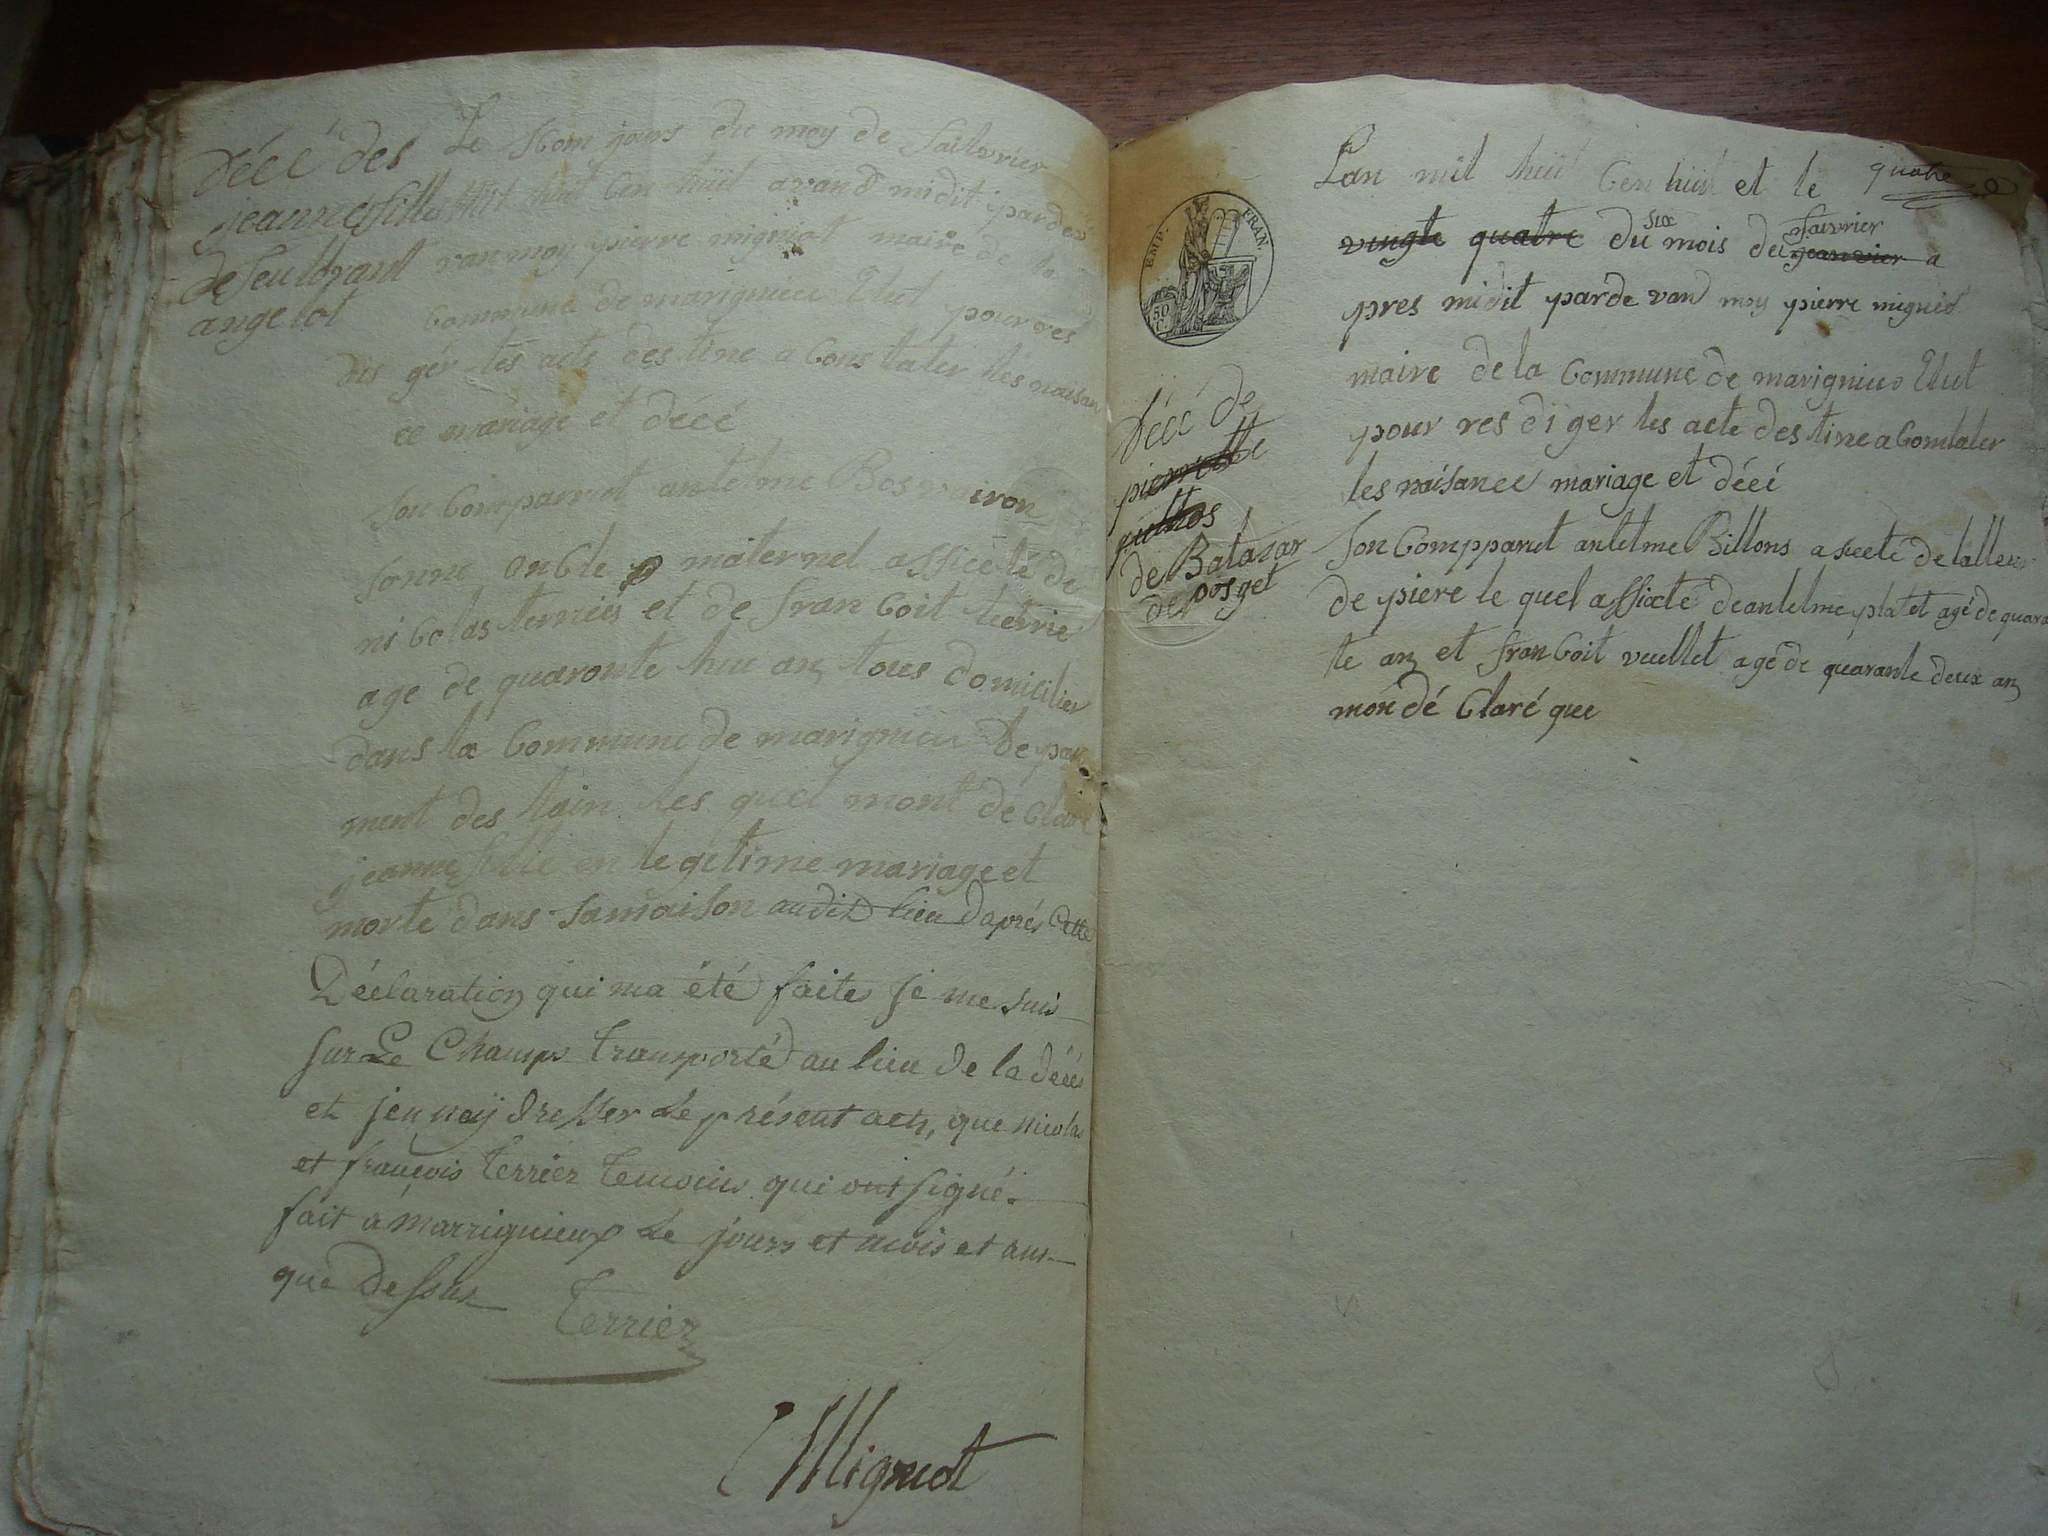 décé des
jeanne fille
de feu lorant
angelot
Le jours du moy de faivrier
mil huit cen huit avand midit parde
vanmoy pierre migniot maire de la
Commune de marignieu Elut pour res
dis ger les acts destine a Constater les naisan
ce mariage et décé
Son Comparret antelme Bosvairon
sonne oncle maternel assiété de
ni Colas terrier et de franCoit terrier
age de quaronte hui an tous domicilier
dans la Commune de marignieu Depar
ment des lain les quel mont dé Claré
jeanne fille en legetime mariage et
morte dans samaison audit lieu daprés Cette
Déclaration qui ma été faite je me suis
sur Le Champs transporté au lieu de la décés
et jen naÿ dresser Le présent acts, que nicolas
et françois Terrier Temoins qui ont signé.
fait a Marrignieux Le jours et mois et ans
que Dessus
Terrier
Mignot
EMP. FRAN.
50
C.
Décé de
pierrette
de Balazar
de posget
Lan mil huit Cen huit et le quatre
vingte quatre du six mois de jeanvier faivrier a
pres midit parde vand moy pierre migniot
maire de la Commune de marignieu Elut
pour res diger les acte destine a Comtater
les naisance mariage et décé
Son Compparret antelme Billons a sieeté de lalleur
de piere le quel assiacte de antelme platet agé de quara
te an et franCoit vuellet agé de quarante deux an
mon dé Claré que